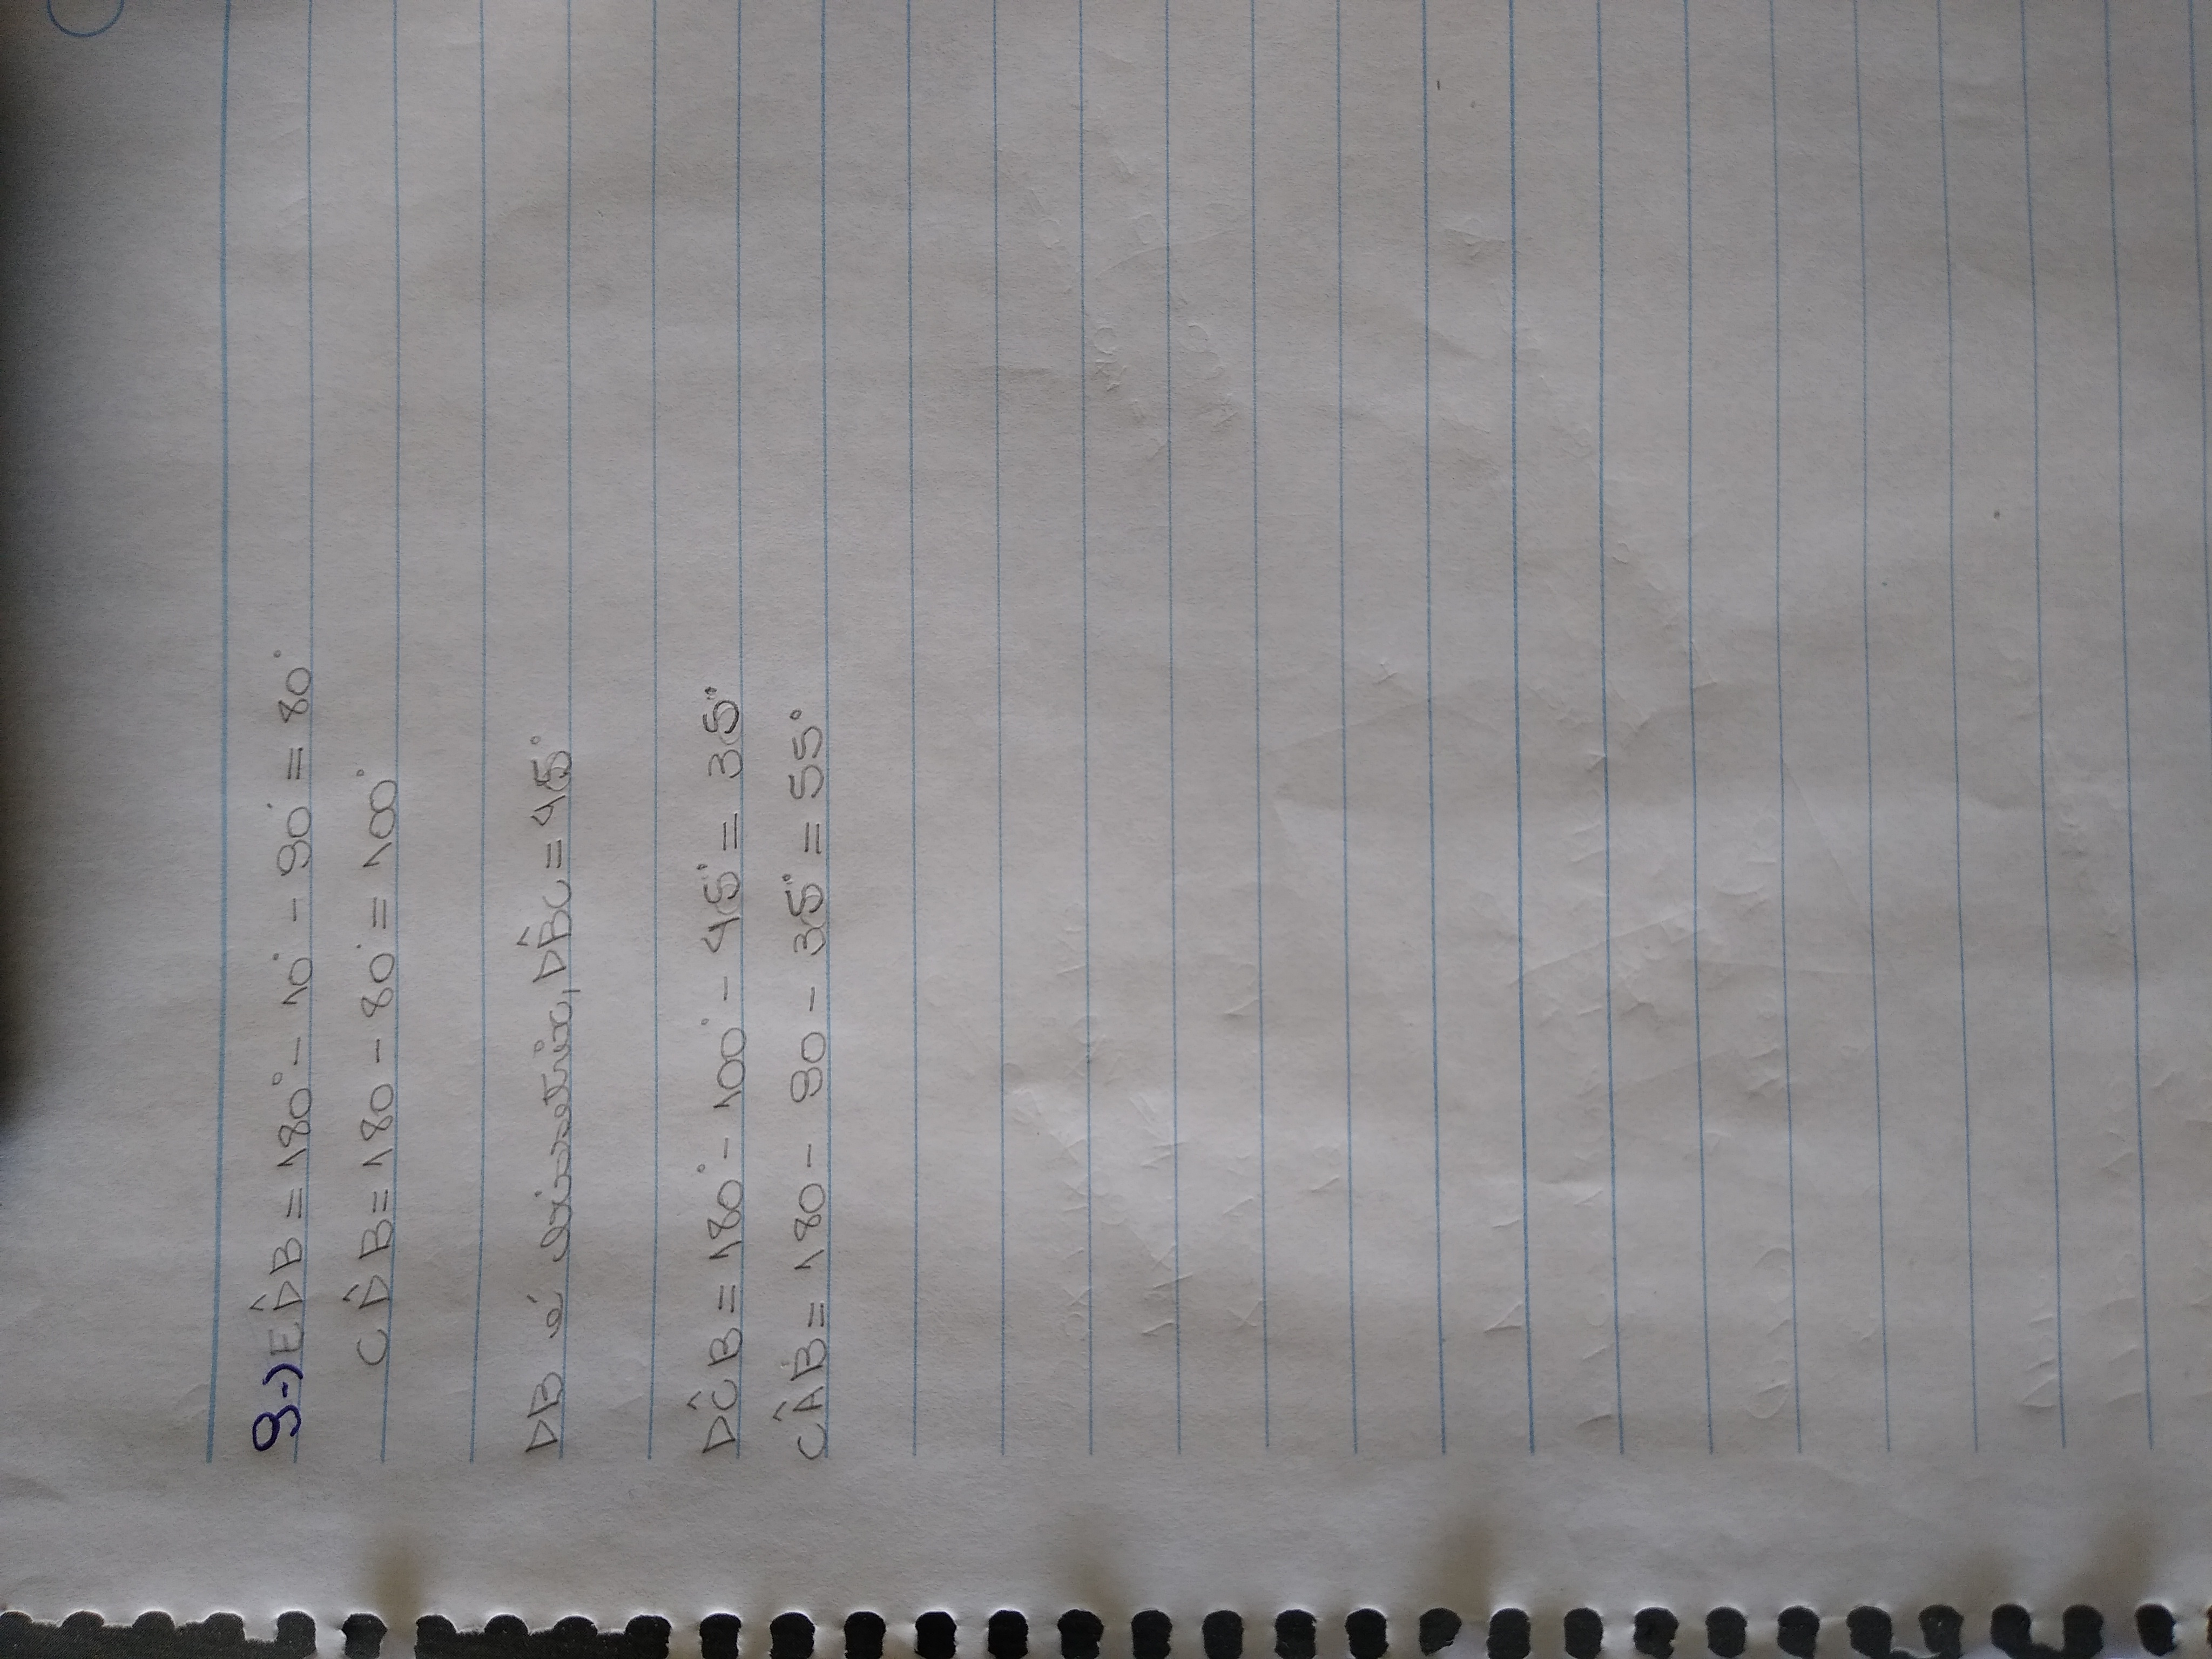 9-) ED̂B = 180° - 10° - 90° = 80°
CD̂B = 180 - 80° = 100°
DB é bissetriz, DB̂C = 45°
DĈB = 180° - 100° - 45° = 35°
CÂB = 180 - 90 - 35° = 55°